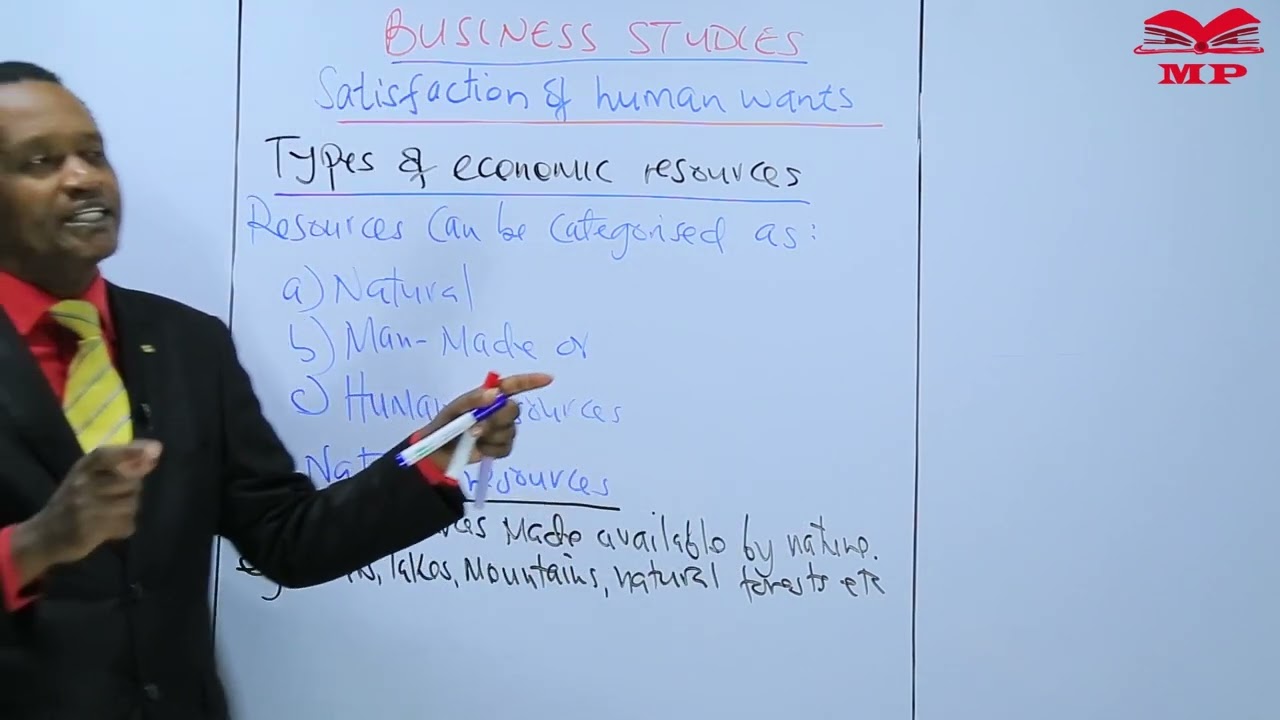 BUSINESS STUDIES
Satisfaction of human wants
Types of economic resources
Resources can be categorised as:
a) Natural
b) Man-Made or
c) Human
resources
Made available by nature.
lakes, Mountains, natural forests etc
MP